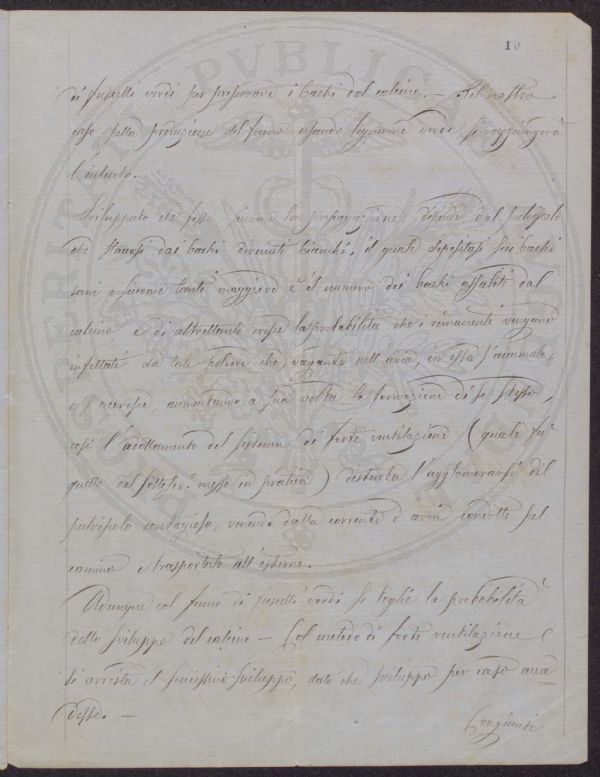 10
di fuselli verdi per preservare i bachi dal calcino. — Nel nostro
caso sulla produzione del fumo usando legname verde, si raggiungerà
l'intento.
Sviluppato che fosse, siccome la propagazione dipende dal pulviscolo
che staccasi dai bachi divenuti bianchi, il quale depositasi sui bachi
sani e siccome tanto maggiore è il numero dei bachi assaliti dal
calcino, e di altrettanto cresce la probabilità che i rimanenti vengano
infettati da tale polvere che, vagando nell'aria, in essa s'accumula,
e s'accresce, aumentando a sua volta la formazione di se stesso,
così l'adottamento del sistema di forte ventilazione (quale fu
quello dal sottoscr.° messo in pratica) disturba l'agglomerarsi del
pulviscolo contagioso, venendo dalla corrente d'aria condotto pel
camino e trasportato all'esterno.
Adunque col fumo di fuselli verdi si toglie la probabilità
dello sviluppo del calcino — Col metodo di forte ventilazione
si arresta il successivo sviluppo, dato che sviluppo per caso acca
desse. —